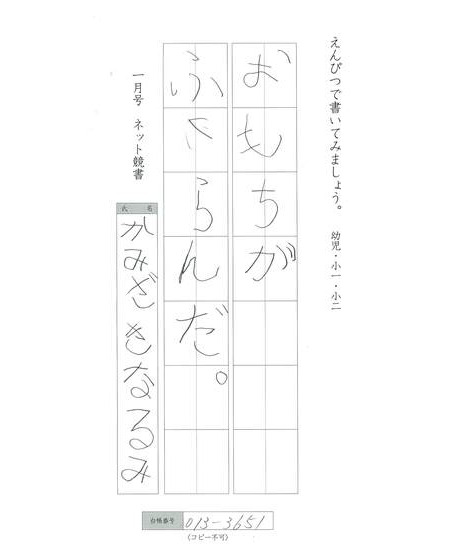 えんぴつで書いてみましょう。 幼児・小一・小二
おもちが
ふくらんだ。
一月号 ネット競書
氏名
かみざきなるみ
台帳番号 013-3651
(コピー不可)